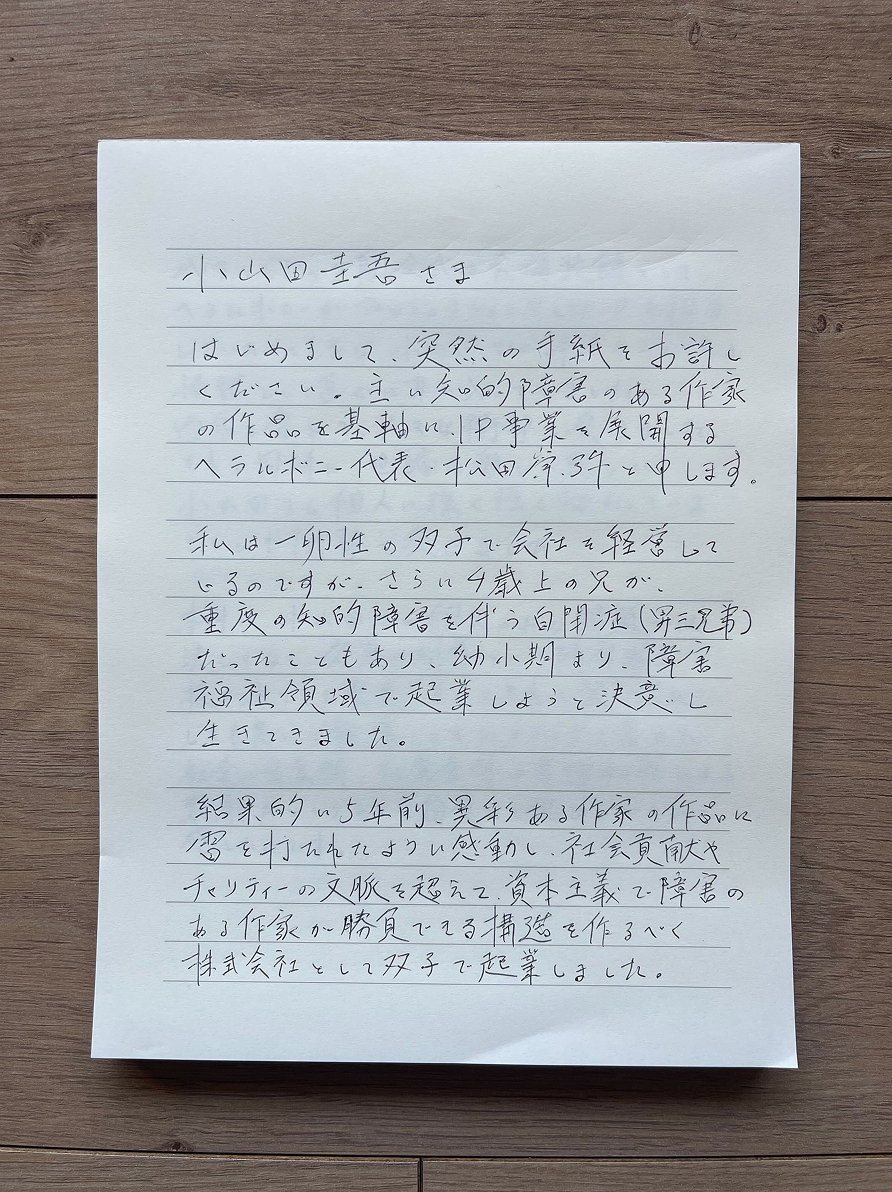 小山田圭吾さま
はじめまして、突然の手紙をお許し
ください。主に知的障害のある作家
の作品を基軸に、IP事業を展開する
ヘラルボニー代表・松田崇弥と申します。
私は一卵性の双子で会社を経営して
いるのですが、さらに4歳上の兄が、
重度の知的障害を伴う自閉症(男三兄弟)
だったこともあり、幼小期より、障害
福祉領域で起業しようと決意し
生きてきました。
結果的に5年前、異彩ある作家の作品に
雷を打たれたように感動し、社会貢献や
チャリティーの文脈を超えて、資本主義で障害の
ある作家が勝負できる構造を作るべく
株式会社として双子で起業しました。